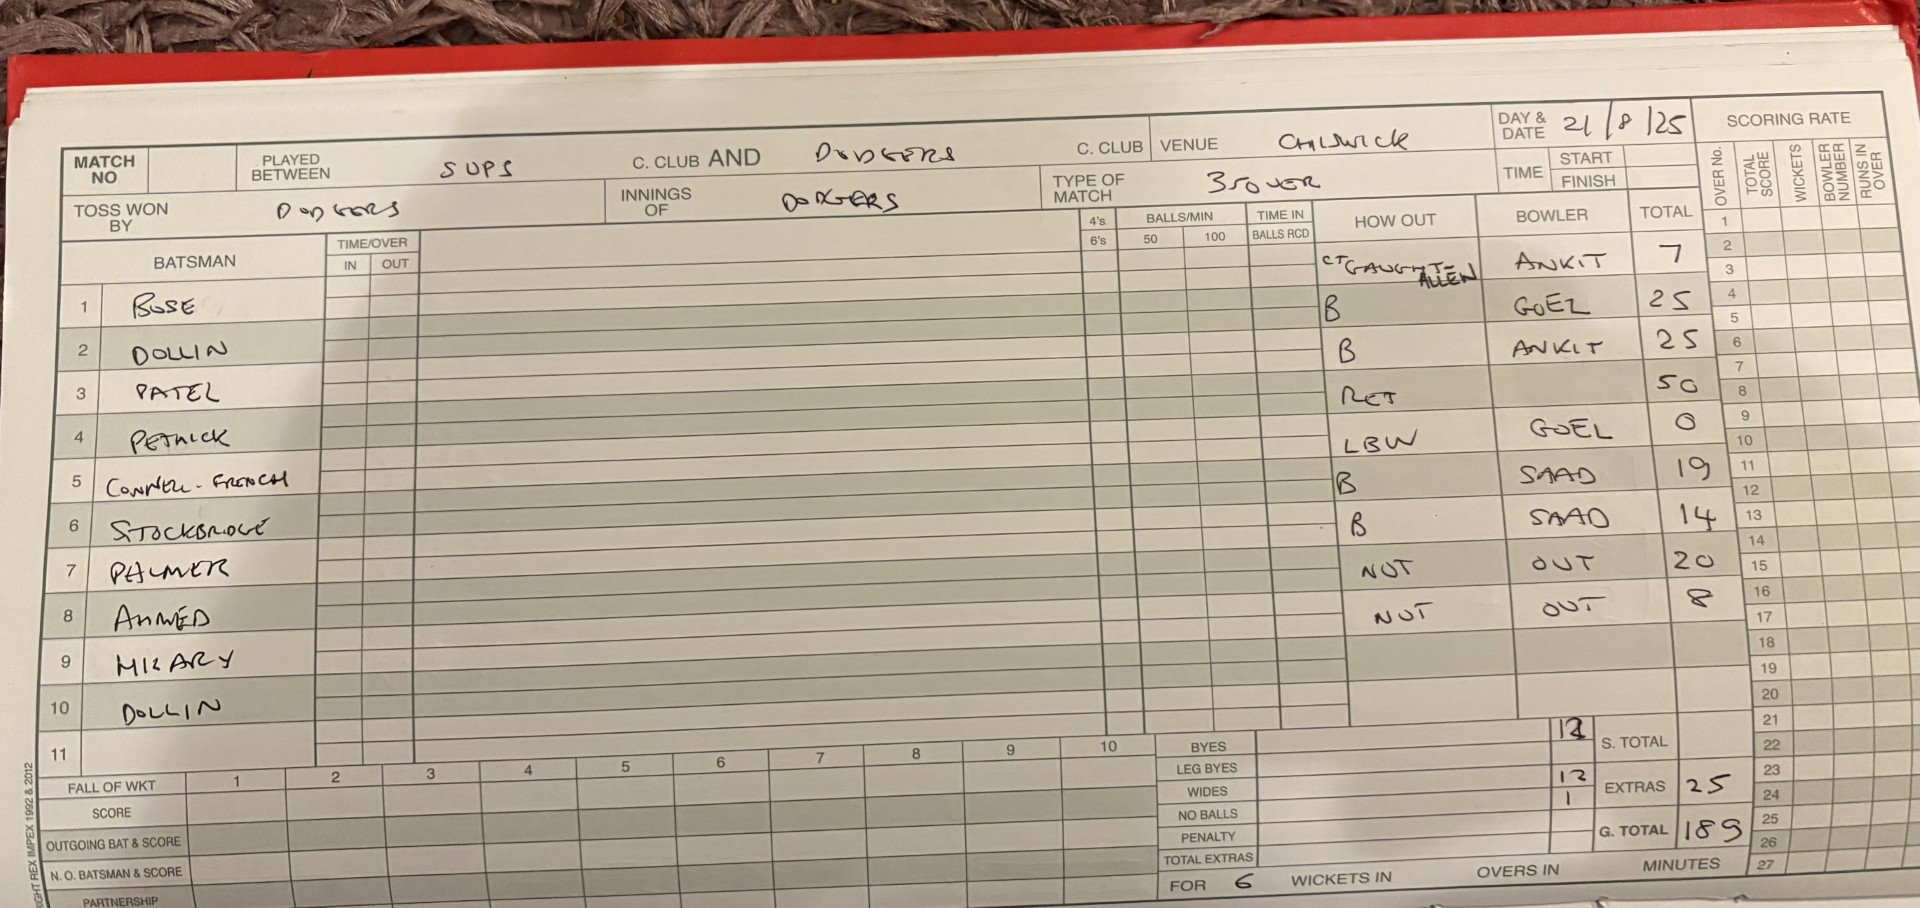 MATCH NO PLAYED BETWEEN SUPS C. CLUB AND DODGERS C. CLUB VENUE CHISWICK DAY & DATE 21/8/25 SCORING RATE
TOSS WON BY DODGERS INNINGS OF DODGERS TYPE OF MATCH 35 OVER TIME START FINISH
OVER No. TOTAL SCORE WICKETS BOWLER NUMBER RUNS IN OVER
BATSMAN TIME/OVER IN OUT 4's 6's BALLS/MIN 50 100 TIME IN BALLS RCD HOW OUT BOWLER TOTAL
1 BOSE CT GAUGHT-ALLEN ANKIT 7
2 DOLLIN B GOEL 25
3 PATEL B ANKIT 25
4 PETHICK RET 50
5 CONNELL-FRENCH LBW GOEL 0
6 STOCKBRIDGE B SAAD 19
7 PALMER B SAAD 14
8 AHMED NOT OUT 20
9 NOT OUT 8
10 DOLLIN
11
1
2
3
4
5
6
7
8
9
10
11
12
13
14
15
16
17
18
19
20
21
22
23
24
25
26
27
FALL OF WKT 1 2 3 4 5 6 7 8 9 10
SCORE
OUTGOING BAT & SCORE
N. O. BATSMAN & SCORE
PARTNERSHIP
BYES 12 S. TOTAL
LEG BYES
WIDES 12 EXTRAS 25
NO BALLS 1
PENALTY G. TOTAL 189
TOTAL EXTRAS
FOR 6 WICKETS IN OVERS IN MINUTES
REX IMPEX 1992 & 2012